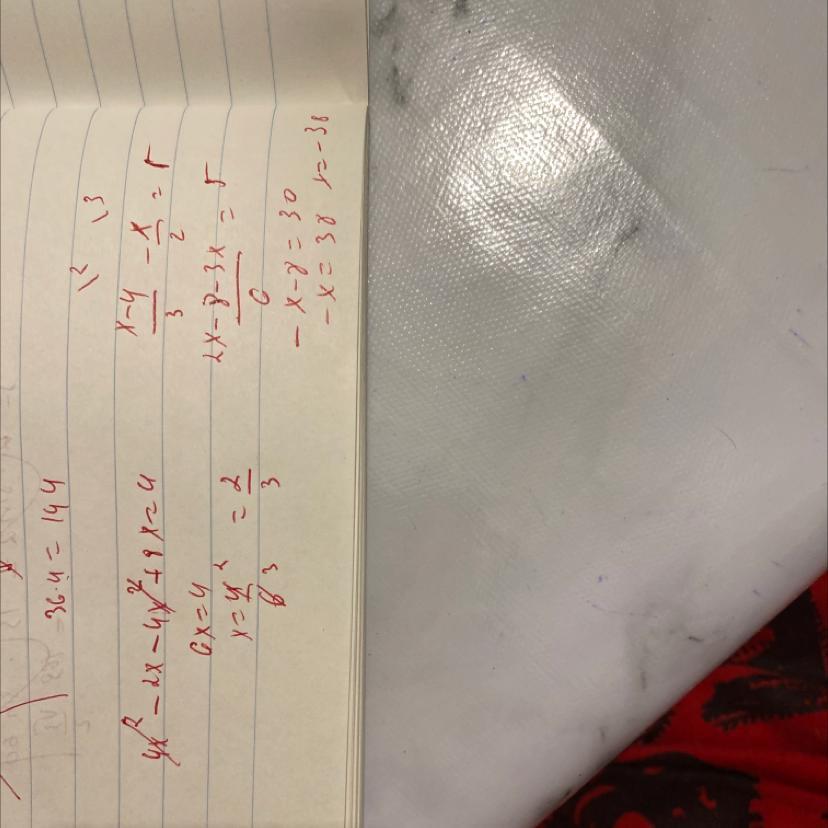 36·4 = 144
4x² − 2x − 4x² + 8x = 4
6x = 4
x = 4/6 \2 \3 = 2/3
\2 \3
x−4/3 − x/2 = 5
2x−8−3x/6 = 5
−x−8 = 30
−x = 38 x = −38